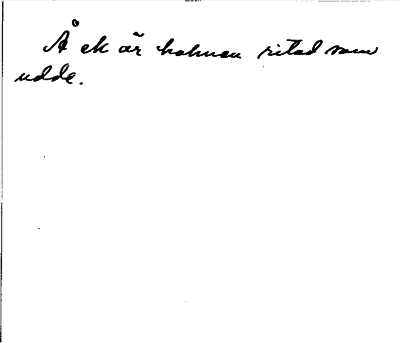 Å ek är holmen ritad som
udde.